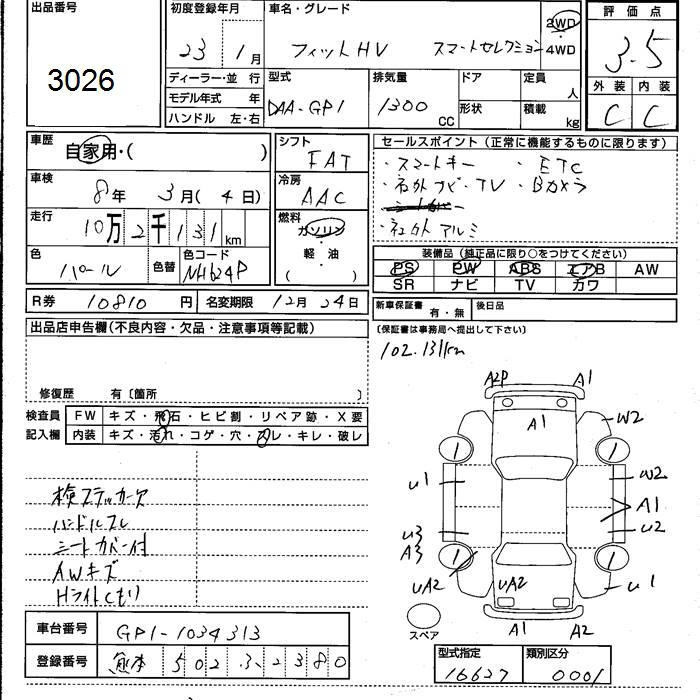 出品番号
3026
初度登録年月
23年 1月
車名・グレード
フィットHV スマートセレクション
2WD
4WD
評価点
3.5
外装 内装
C C
ディーラー・並行
モデル年式 年
ハンドル 左・右
型式
DAA-GP1
排気量
1300 CC
ドア
形状
定員 人
積載 kg
車歴
自家用・( )
車検
8年 3月(4日)
走行
10万2千131km
色
パール
色替
色コード
NH624P
シフト
FAT
冷房
AAC
燃料
ガソリン
・
軽・油
( )
セールスポイント(正常に機能するものに限ります)
・スマートキー ・ETC
・社外ナビ・TV ・Bカメラ
・社外アルミ
装備品(純正品に限り○をつけてください)
PS PW ABS エアB AW
SR ナビ TV カワ
R券 10810円 名変期限 12月24日
新車保証書 有・無 後日品
(保証書は事務局へ提出して下さい)
出品店申告欄(不良内容・欠品・注意事項等記載)
102.131km
修復歴 有〔箇所 〕
検査員
記入欄
FW キズ・飛石・ヒビ割・リペア跡・X要
内装 キズ・汚れ・コゲ・穴・スレ・キレ・破レ
検ステッカー欠
ハンドルスレ
シートカバー付
AWキズ
Hライトくもり
A2P A1
A1
W2
U1
W2
A1
U2
U3
A3
UA2
UA2
U1
A1 A2
スペア
車台番号 GP1-1034313
登録番号 熊本 502 3-2380
型式指定 類別区分
16627 0001